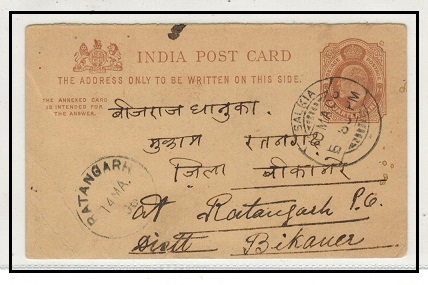 INDIA POST CARD
THE ADDRESS ONLY TO BE WRITTEN ON THIS SIDE.
THE ANNEXED CARD
IS INTENDED FOR
THE ANSWER.
SALKIA
बीजराज धानुका.
मुकाम रतनगढ़
ज़िला बीकानेर
RATANGARH
14 MA.
At Ratangarh P.O.
Distt Bikaner